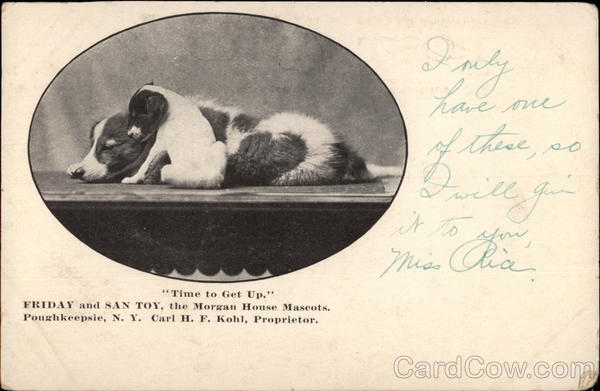 I only
have one
of these, so
I will give
it to you,
Miss Rice.
"Time to Get Up."
FRIDAY and SAN TOY, the Morgan House Mascots.
Poughkeepsie, N. Y. Carl H. F. Kohl, Proprietor.
CardCow.com